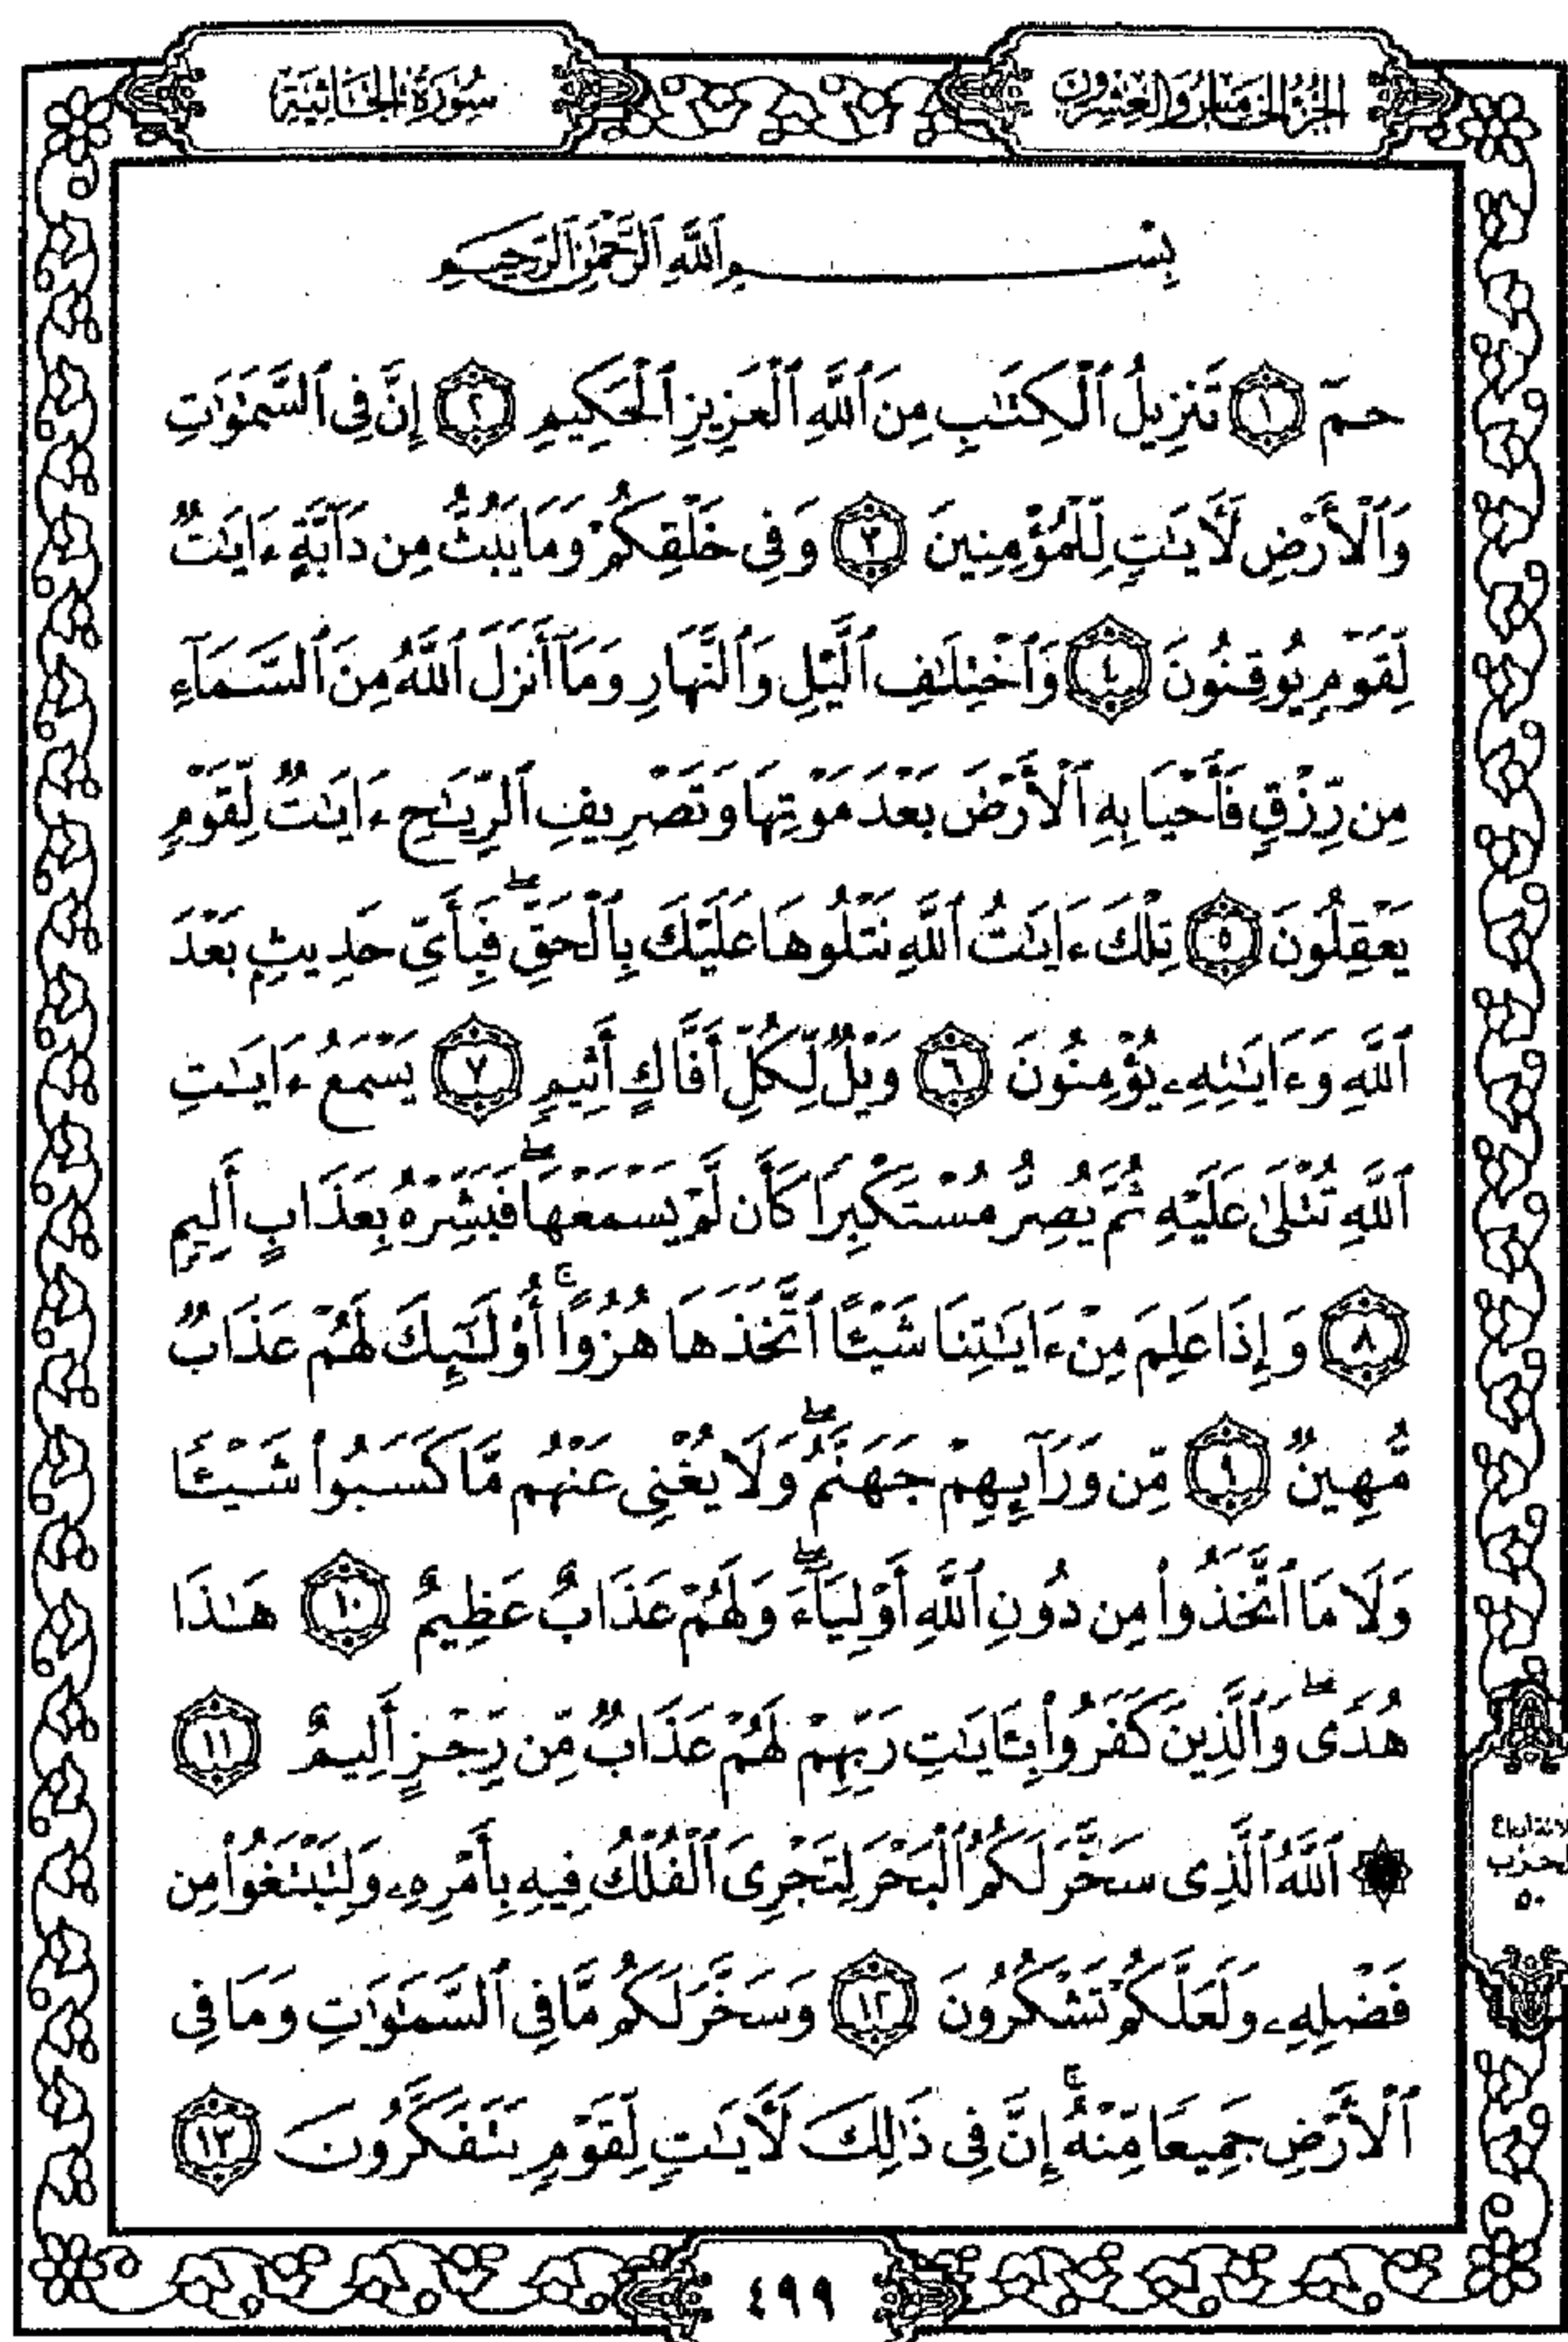 الجزء الخامس والعشرون
سورة الجاثية
بِسْمِ ٱللَّهِ ٱلرَّحْمَٰنِ ٱلرَّحِيمِ
حمٓ ١ تَنزِيلُ ٱلْكِتَٰبِ مِنَ ٱللَّهِ ٱلْعَزِيزِ ٱلْحَكِيمِ ٢ إِنَّ فِى ٱلسَّمَٰوَٰتِ
وَٱلْأَرْضِ لَءَايَٰتٍ لِّلْمُؤْمِنِينَ ٣ وَفِى خَلْقِكُمْ وَمَا يَبُثُّ مِن دَآبَّةٍ ءَايَٰتٌ
لِّقَوْمٍ يُوقِنُونَ ٤ وَٱخْتِلَٰفِ ٱلَّيْلِ وَٱلنَّهَارِ وَمَآ أَنزَلَ ٱللَّهُ مِنَ ٱلسَّمَآءِ
مِن رِّزْقٍ فَأَحْيَا بِهِ ٱلْأَرْضَ بَعْدَ مَوْتِهَا وَتَصْرِيفِ ٱلرِّيَٰحِ ءَايَٰتٌ لِّقَوْمٍ
يَعْقِلُونَ ٥ تِلْكَ ءَايَٰتُ ٱللَّهِ نَتْلُوهَا عَلَيْكَ بِٱلْحَقِّ ۖ فَبِأَىِّ حَدِيثٍۭ بَعْدَ
ٱللَّهِ وَءَايَٰتِهِۦ يُؤْمِنُونَ ٦ وَيْلٌ لِّكُلِّ أَفَّاكٍ أَثِيمٍ ٧ يَسْمَعُ ءَايَٰتِ
ٱللَّهِ تُتْلَىٰ عَلَيْهِ ثُمَّ يُصِرُّ مُسْتَكْبِرًا كَأَن لَّمْ يَسْمَعْهَا ۖ فَبَشِّرْهُ بِعَذَابٍ أَلِيمٍ
٨ وَإِذَا عَلِمَ مِنْ ءَايَٰتِنَا شَيْـًٔا ٱتَّخَذَهَا هُزُوًا ۚ أُو۟لَٰٓئِكَ لَهُمْ عَذَابٌ
مُّهِينٌ ٩ مِّن وَرَآئِهِمْ جَهَنَّمُ ۖ وَلَا يُغْنِى عَنْهُم مَّا كَسَبُوا۟ شَيْـًٔا
وَلَا مَا ٱتَّخَذُوا۟ مِن دُونِ ٱللَّهِ أَوْلِيَآءَ ۖ وَلَهُمْ عَذَابٌ عَظِيمٌ ١٠ هَٰذَا
هُدًى ۖ وَٱلَّذِينَ كَفَرُوا۟ بِـَٔايَٰتِ رَبِّهِمْ لَهُمْ عَذَابٌ مِّن رِّجْزٍ أَلِيمٌ ١١
۞ ٱللَّهُ ٱلَّذِى سَخَّرَ لَكُمُ ٱلْبَحْرَ لِتَجْرِىَ ٱلْفُلْكُ فِيهِ بِأَمْرِهِۦ وَلِتَبْتَغُوا۟ مِن
فَضْلِهِۦ وَلَعَلَّكُمْ تَشْكُرُونَ ١٢ وَسَخَّرَ لَكُم مَّا فِى ٱلسَّمَٰوَٰتِ وَمَا فِى
ٱلْأَرْضِ جَمِيعًا مِّنْهُ ۚ إِنَّ فِى ذَٰلِكَ لَءَايَٰتٍ لِّقَوْمٍ يَتَفَكَّرُونَ ١٣
الحزب
٥٠
٤٩٩